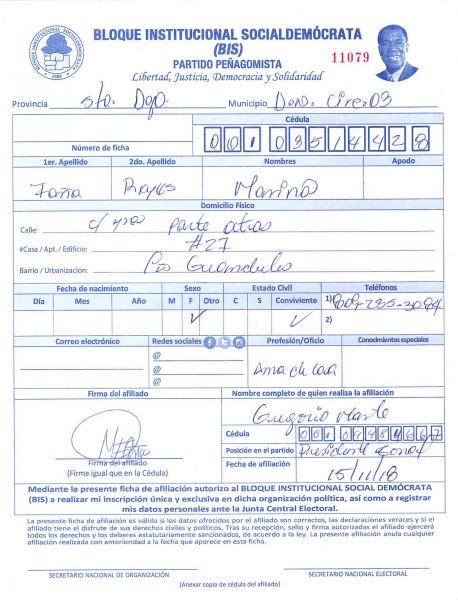 BLOQUE INSTITUCIONAL SOCIALDEMÓCRATA
(BIS)
PARTIDO PEÑAGOMISTA
11079
Libertad, Justicia, Democracia y Solidaridad
Provincia Sto. Dgo. Municipio
Cédula
Número de ficha
1er. Apellido 2do. Apellido Nombres Apodo
Reyes Marina
Domicilio Físico
Calle: parte atras
#Casa / Apt. / Edificio: #27
Barrio / Urbanización:
Fecha de nacimiento Sexo Estado Civil Teléfonos
Día Mes Año M F Otro C S Conviviente 1)
2)
Correo electrónico Redes sociales Profesión/Oficio Conocimientos especiales
@
@
@
Ama de casa
Firma del afiliado Nombre completo de quien realiza la afiliación
Gregorio
Cédula
Posición en el partido Presidente
Fecha de afiliación 15/11/18
Firma del afiliado
(Firme igual que en la Cédula)
Mediante la presente ficha de afiliación autorizo al BLOQUE INSTITUCIONAL SOCIAL DEMÓCRATA
(BIS) a realizar mi inscripción única y exclusiva en dicha organización política, así como a registrar
mis datos personales ante la Junta Central Electoral.
La presente ficha de afiliación es válida si los datos ofrecidos por el afiliado son correctos, las declaraciones veraces y si el
afiliado tiene el disfrute de sus derechos civiles y políticos. Tras su recepción, sello y firma autorizadas el afiliado ejercerá
todos los derechos y los deberes estatutariamente sancionados, de acuerdo a la ley. La presente afiliación anula cualquier
afiliación realizada con anterioridad a la fecha que aparece en esta ficha.
SECRETARIO NACIONAL DE ORGANIZACIÓN SECRETARIO NACIONAL ELECTORAL
(Anexar copia de cédula del afiliado)